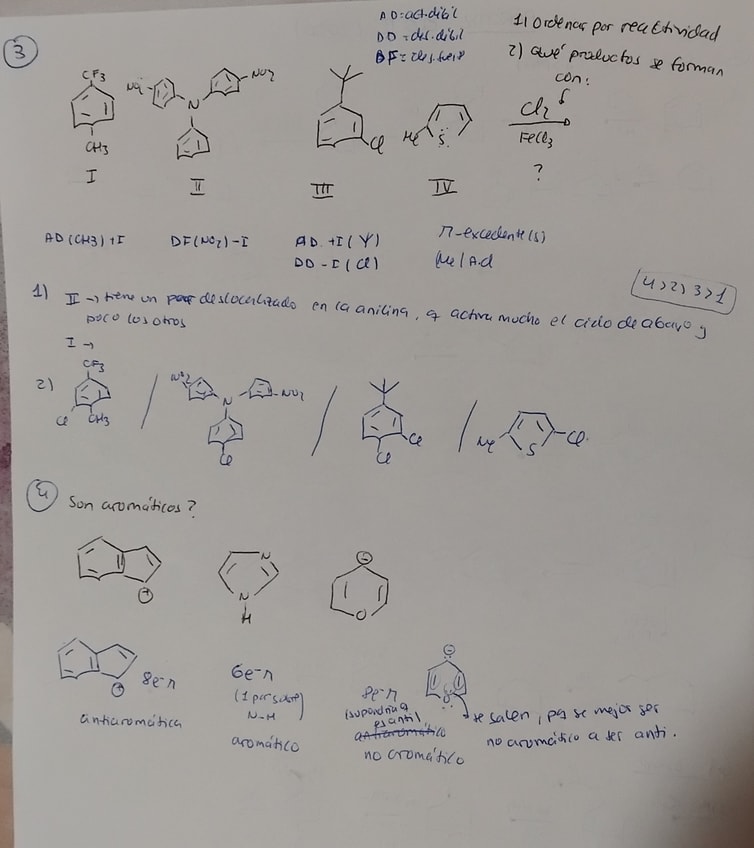 AD: act. débil
DD = des. débil
DF = des. fuerte
1) Ordenar por reactividad
2) Qué productos se forman
con:
3
CF3
CH3
I
NO2
NO2
N
II
Cl
III
Me
S
IV
Cl2
FeCl3
?
AD (CH3) +I
DF (NO2) -I
AD. +I (Y)
DD -I (Cl)
π-excedente (S)
Me / A.d
4 > 2 > 3 > 1
1) II → tiene un par deslocalizado en la anilina, q activa mucho el ciclo de abajo y
poco los otros
I →
2)
CF3
Cl
CH3
NO2
N
NO2
Cl
Cl
Cl
Me
S
Cl.
4
Son aromáticos?
N
N
H
O
8e-π
antiaromática
6e-π
(1 par sobre
N-H)
aromático
8e-π
(supondría q
es anti)
antiaromático
no aromático
se salen, pq es mejor ser
no aromático a ser anti.